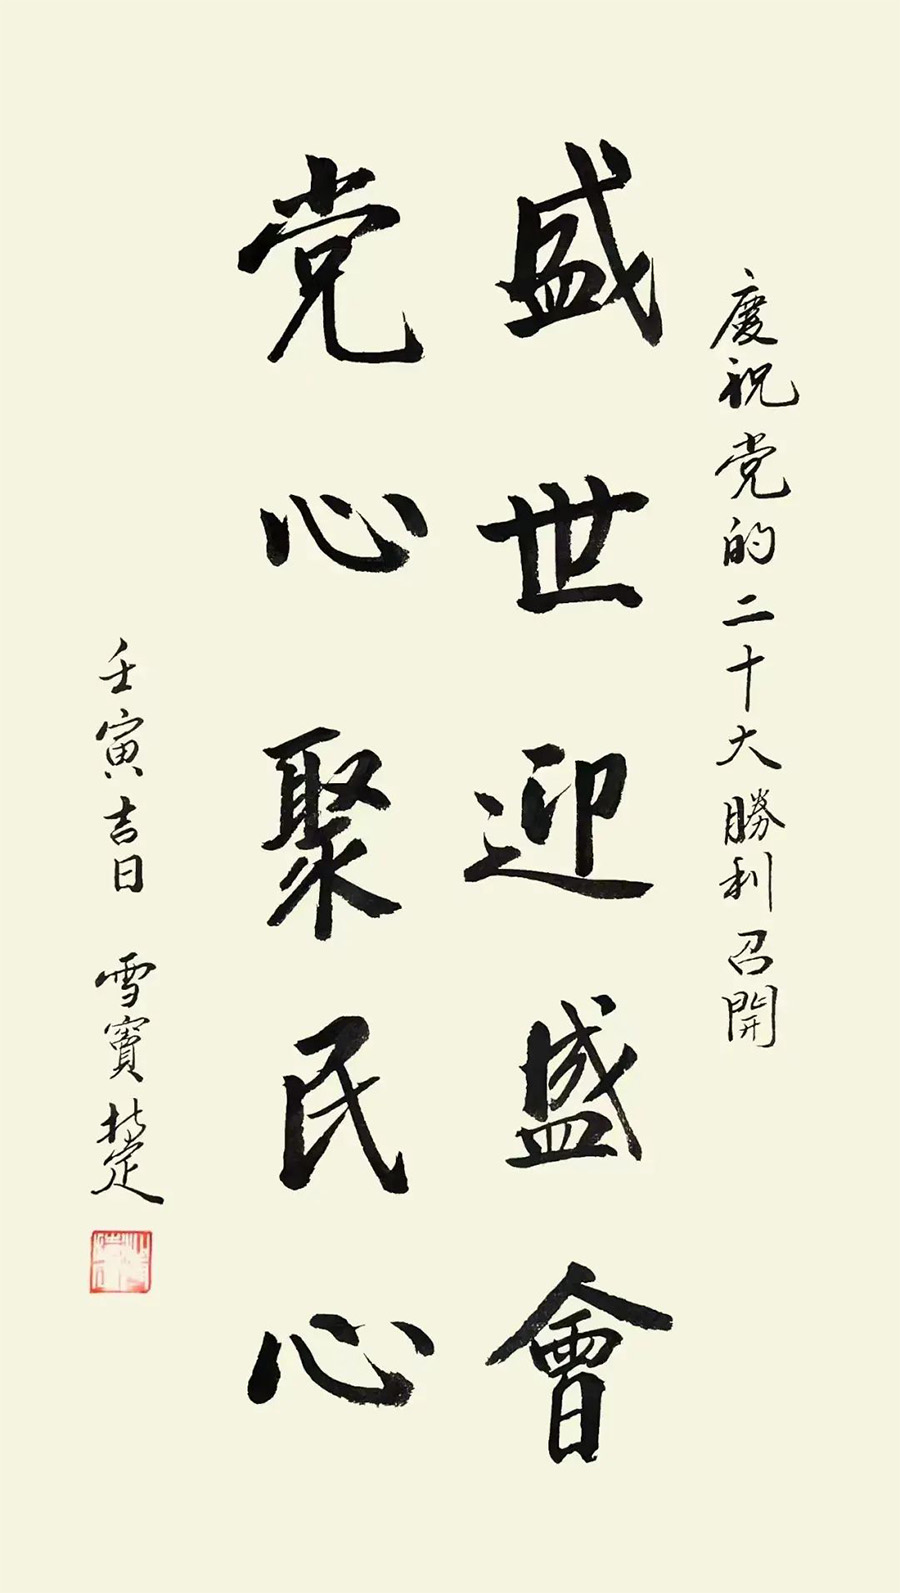 慶祝党的二十大勝利召開
盛世迎盛會
党心聚民心
壬寅吉日 雪竇楚定